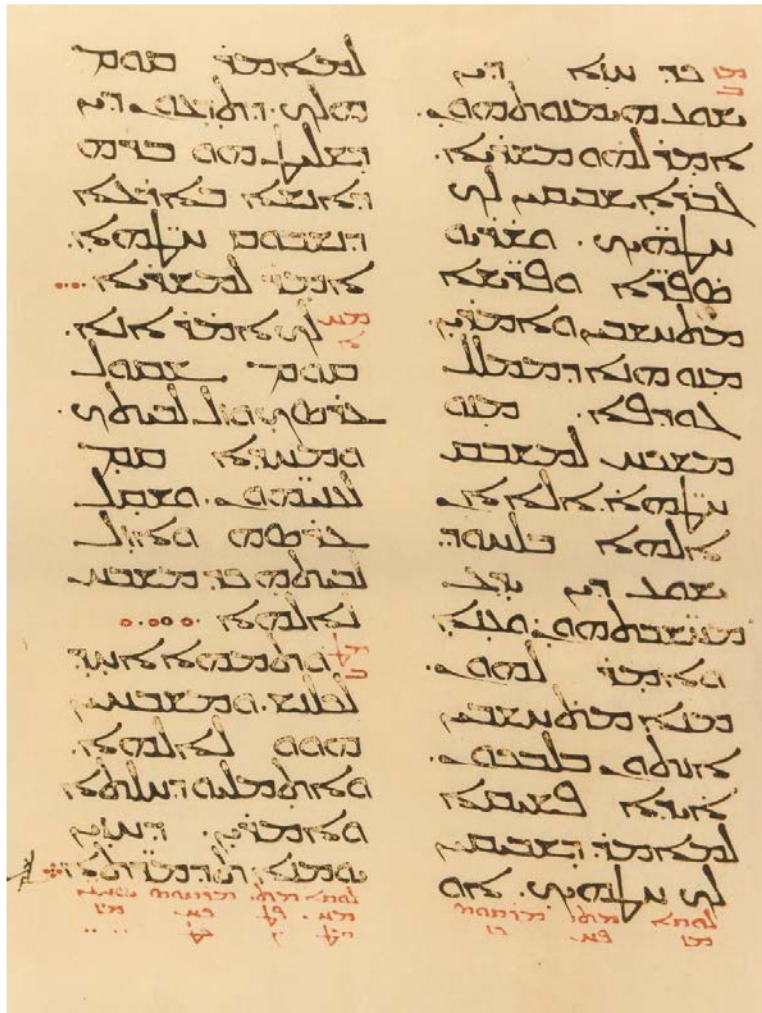 ܟܕ ܚܙܐ ܕܝܢ
ܝܫܘܥ ܗܝܡܢܘܬܗܘܢ.
ܐܡܪ ܠܗܘ ܡܫܪܝܐ.
ܓܒܪܐ ܫܒܝܩܝܢ ܠܟ
ܚܛܗ̈ܝܟ. ܘܫܪܝܘ
ܣܦܪ̈ܐ ܘܦܪ̈ܝܫܐ
ܡܬܚܫܒܝܢ ܘܐܡܪܝܢ.
ܡܢܘ ܗܢܐ ܕܡܡܠܠ
ܓܘܕܦܐ. ܡܢܘ
ܡܫܟܚ ܠܡܫܒܩ
ܚܛܗ̈ܐ. ܐܠܐ ܐܢ
ܐܠܗܐ ܒܠܚܘܕ.
ܝܫܘܥ ܕܝܢ ܝܕܥ
ܡܚܫ̈ܒܬܗܘܢ. ܘܥܢܐ
ܘܐܡܪ ܠܗܘܢ.
ܡܢܐ ܡܬܚܫܒܝܢ
ܐܢܬܘܢ ܒܠܒܟܘܢ.
ܐܝܕܐ ܦܫܝܩܐ
ܠܡܐܡܪ. ܕܫܒܝܩܝܢ
ܠܟ ܚܛܗ̈ܝܟ. ܐܘ
ܠܡܐܡܪ ܩܘܡ
ܗܠܟ. ܕܬܕܥܘܢ ܕܝܢ
ܕܫܠܝܛ ܗܘ ܒܪܗ
ܕܐܢܫܐ ܒܐܪܥܐ
ܕܢܫܒܘܩ ܚܛܗ̈ܐ.
ܐܡܪ ܠܡܫܪܝܐ.
ܠܟ ܐܡܪ ܐܢܐ.
ܩܘܡ ܫܩܘܠ
ܥܪܣܟ ܘܙܠ ܠܒܝܬܟ.
ܘܡܚܕܐ ܩܡ
ܠܥܢܝ̈ܗܘܢ. ܘܫܩܠ
ܥܪܣܗ ܘܐܙܠ
ܠܒܝܬܗ ܟܕ ܡܫܒܚ
ܠܐܠܗܐ.
ܘܬܡܗܐ ܐܚܕ
ܠܟܠܢܫ. ܘܡܫܒܚܝܢ
ܗܘܘ ܠܐܠܗܐ.
ܘܐܬܡܠܝܘ ܕܚܠܬܐ
ܘܐܡܪܝܢ. ܕܚܙܝܢ
ܝܘܡܢܐ ܬܕܡܪ̈ܬܐ